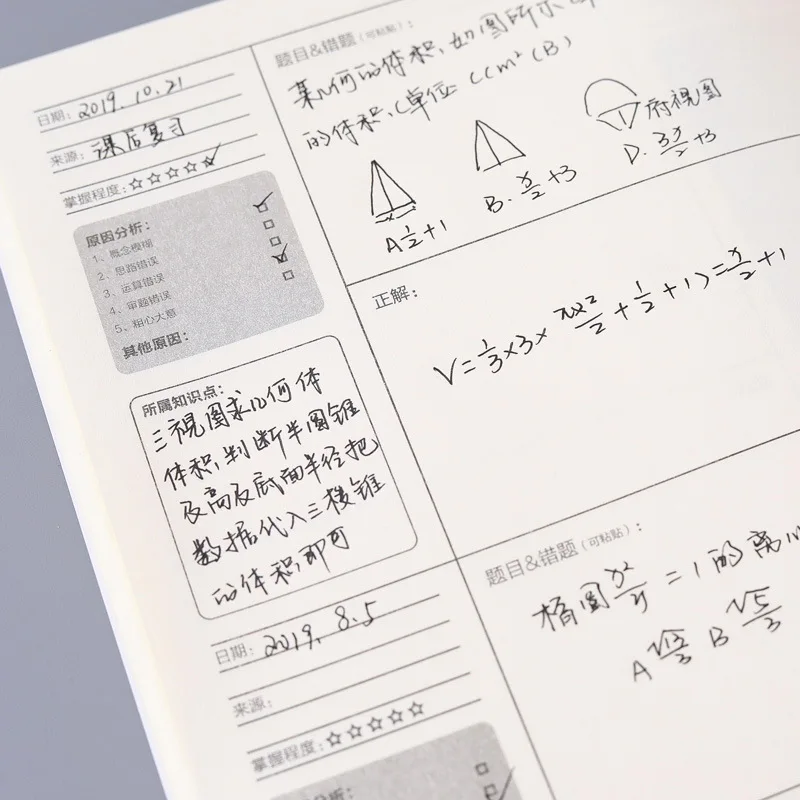 日期: 2019. 10. 21
来源: 课后复习
掌握程度: ☆☆☆☆☆
原因分析:
1、概念模糊
2、思路错误
3、运算错误
4、审题错误
5、粗心大意
其他原因:
所属知识点:
三視图求几何体
体积,判断半圆锥
及高及底面半径把
数据代入三棱锥
的体积即可
题目&错题(可粘贴):
某几何的体积,如图所示
的体积,(单位 CCm² (B)
府視图
A 1/2+1
B. /2+3
D. /2+3
正解:
V=1/3×3×/2+1/2+1)=/2+1
日期: 2019. 8.5
来源:
掌握程度: ☆☆☆☆☆
分析:
题目&错题(可粘贴):
椭圆 =1的离心
A B √5/3